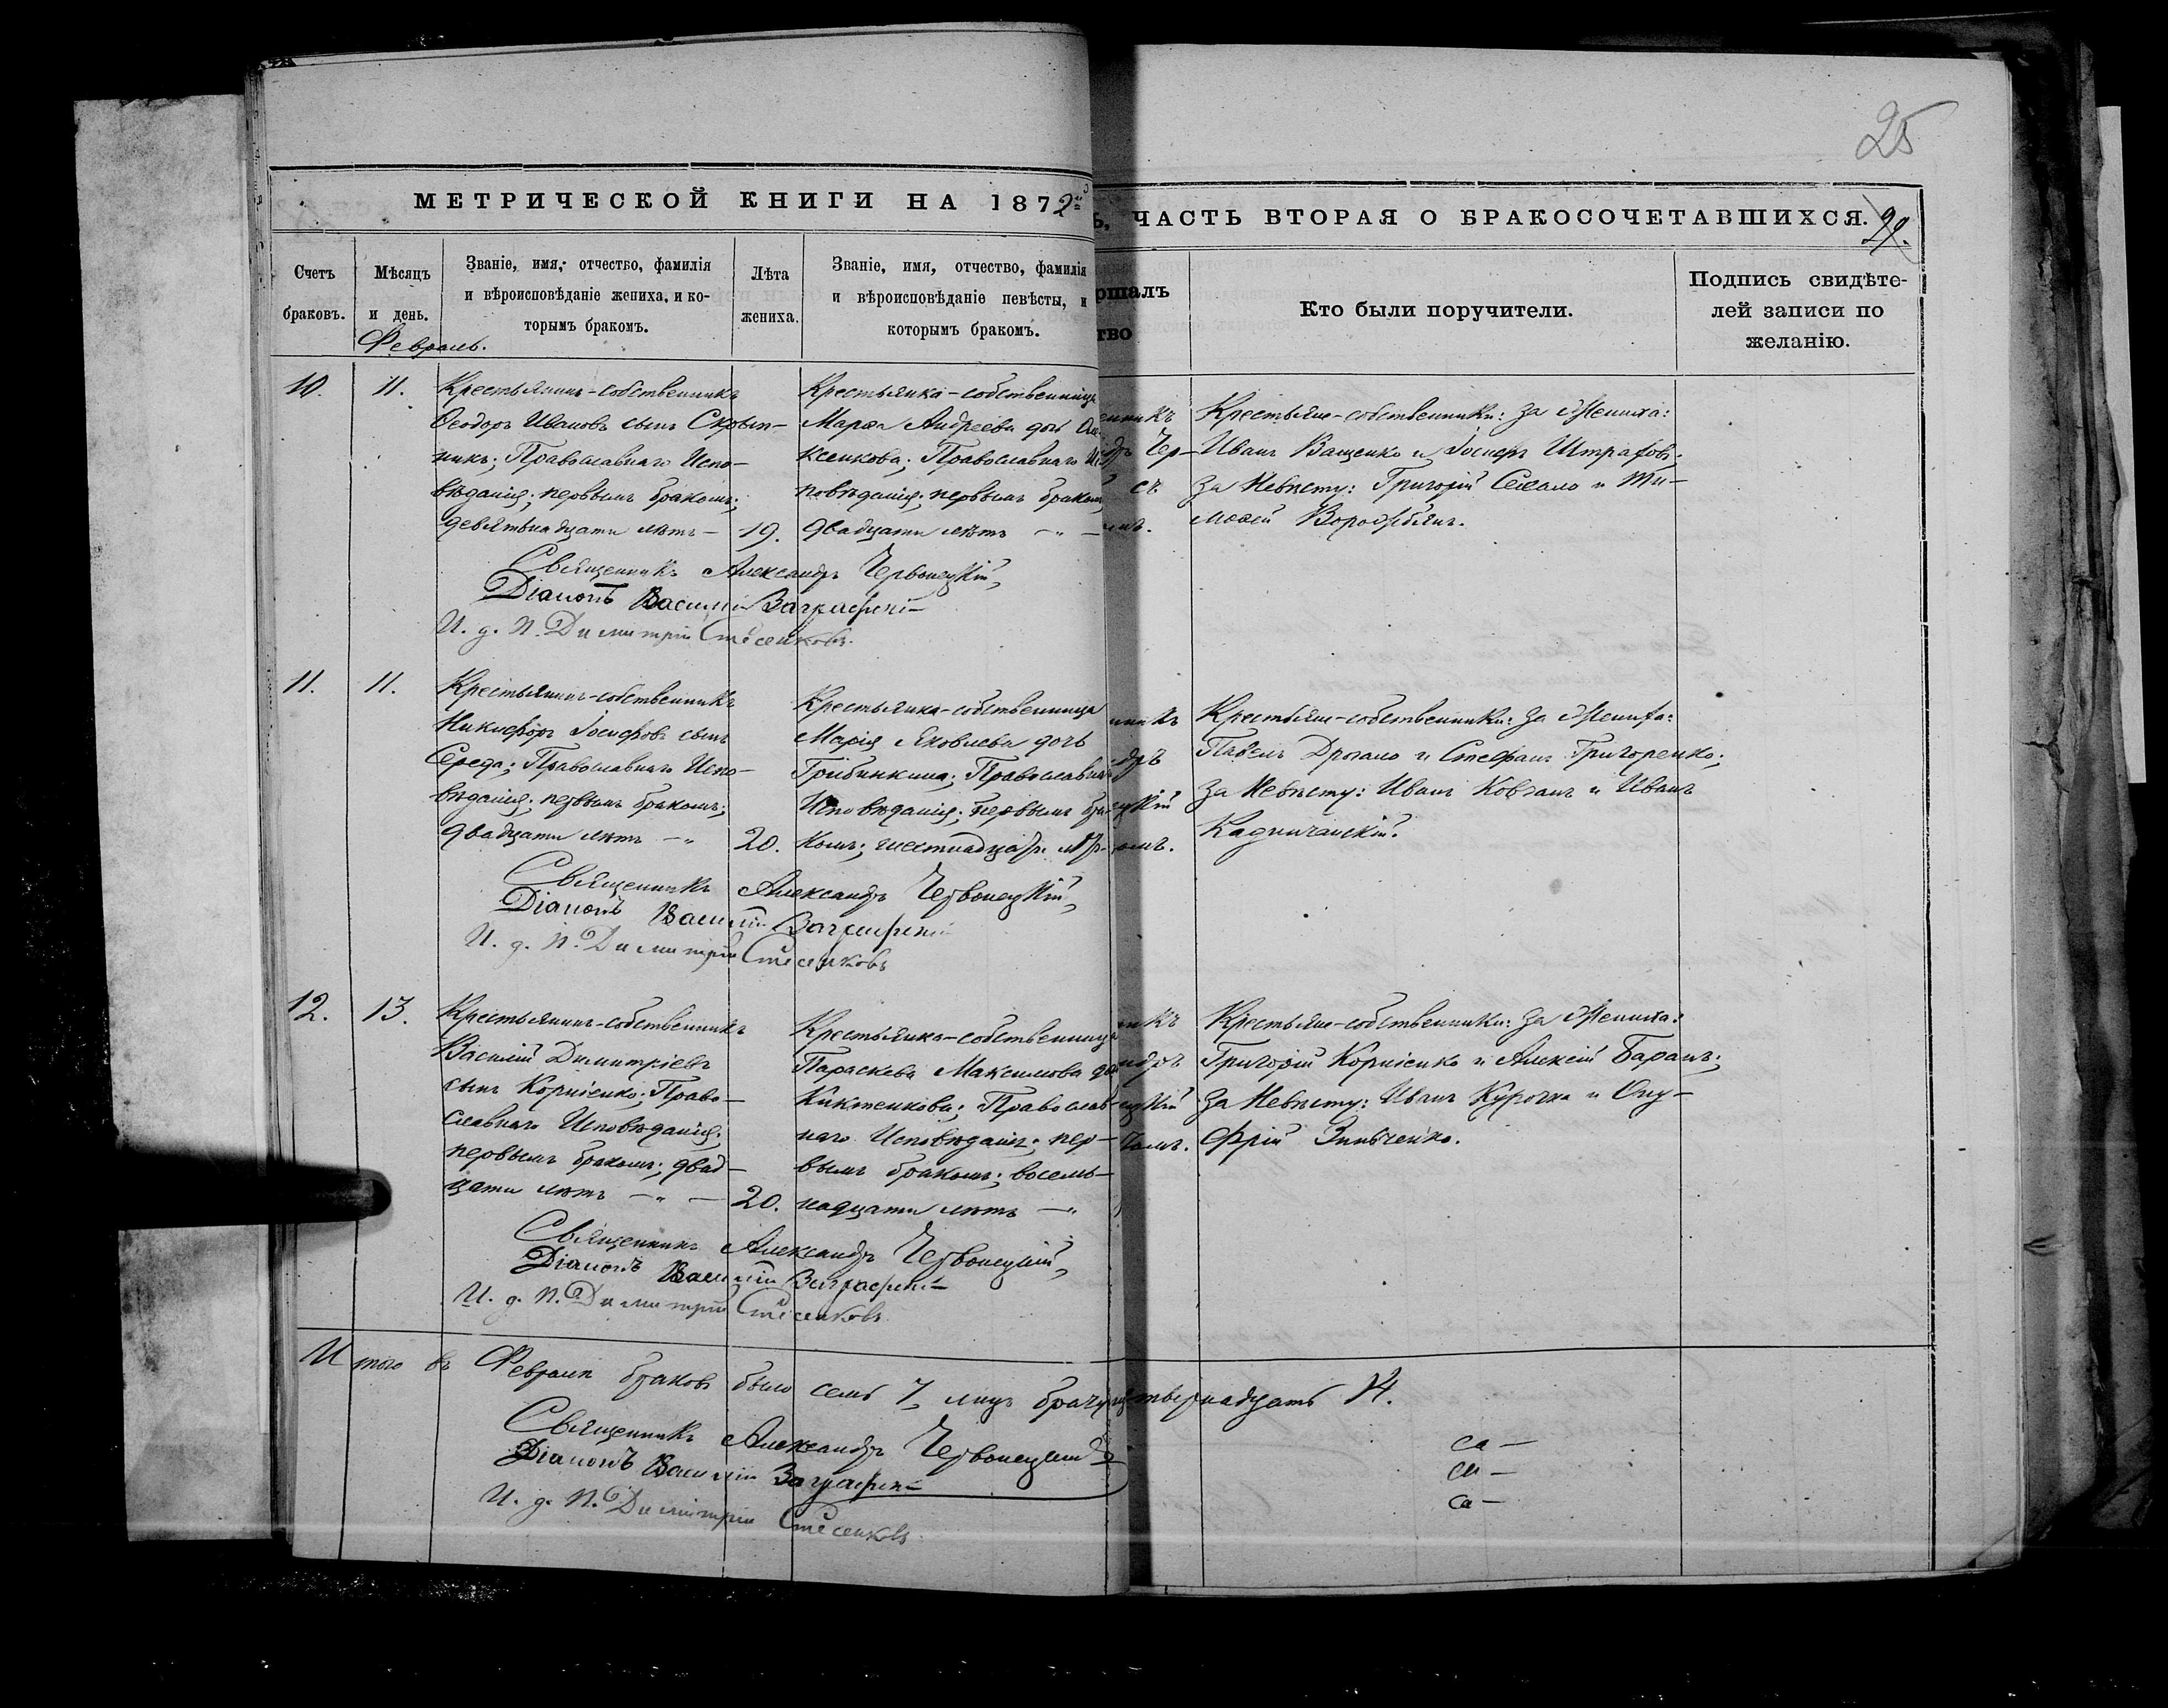 25
МЕТРИЧЕСКОЙ КНИГИ НА 1872
Ь, ЧАСТЬ ВТОРАЯ О БРАКОСОЧЕТАВШИХСЯ.
Счетъ браковъ.
Мѣсяцъ и день.
Званіе, имя, отчество, фамилія
и вѣроисповѣданіе жениха, и ко-
торымъ бракомъ.
Лѣта
жениха.
Званіе, имя, отчество, фамилія
и вѣроисповѣданіе невѣсты, и
которымъ бракомъ.
ршалъ
тво
Кто были поручители.
Подпись свидѣте-
лей записи по
желанію.
Февраль.
10.
11.
Крестьянинъ-собственникъ
Ѳеодоръ Ивановъ сынъ Скрып-
никъ; Православнаго Испо-
вѣданія; первымъ бракомъ;
девятнадцати лѣтъ —
19.
Крестьянка-собственница
Марѳа Андреева дочь
ксенкова; Православнаго Ис
повѣданія; первымъ бракомъ;
двадцати лѣтъ — " —
енникъ
ндръ Чер-
съ
Крестьяне-собственники: за Жениха:
Иванъ Ващенко и Іосифъ Штрафовъ;
за Невѣсту: Григорій и Ти-
моѳей Воробьянъ.
Священникъ Александръ Червонецкій,
Діаконъ Василій
И. д. П. Димитрій Стесенковъ.
11.
11.
Крестьянинъ-собственникъ
Никифоръ Іосифовъ сынъ
Середа; Православнаго Испо-
вѣданія; первымъ бракомъ;
двадцати лѣтъ — "
20.
Крестьянка-собственница
Марія Яковлева дочь
Грибинкина; Православнаго
Исповѣданія; первымъ бра-
комъ; шестнадцати лѣт-
нникъ
ндръ
ецкій
омъ.
Крестьяне-собственники: за Жениха:
Павелъ Дрогало и Стефанъ Григоренко;
за Невѣсту: Иванъ Ковганъ и Иванъ
Кадничанскій.
Священникъ Александръ Червонецкій,
Діаконъ Василій
И. д. П. Димитрій Стесенковъ
12.
13.
Крестьянинъ-собственникъ
Василій Димитріевъ
сынъ Корніенко; Право-
славнаго Исповѣданія;
первымъ бракомъ; двад-
цати лѣтъ — " —
20.
Крестьянка-собственница
Параскева Максимова до
Киктенкова; Православ-
наго Исповѣданія; пер-
вымъ бракомъ; восемь-
надцати лѣтъ — "
никъ
ндръ
ецкій
Крестьяне-собственники: за Жениха:
Григорій Корніенко и Алексій Баранъ;
за Невѣсту: Иванъ Курочка и Ону-
фрій Зинченко.
Священникъ Александръ Червонецкій,
Діаконъ Василій
И. д. П. Димитрій Стесенковъ
Итого въ Февралѣ браковъ было семь 7, лицъ четвернадцать 14.
Священникъ Александръ Червонецкій
Діаконъ Василій
И. д. П. Димитрій Стесенковъ.